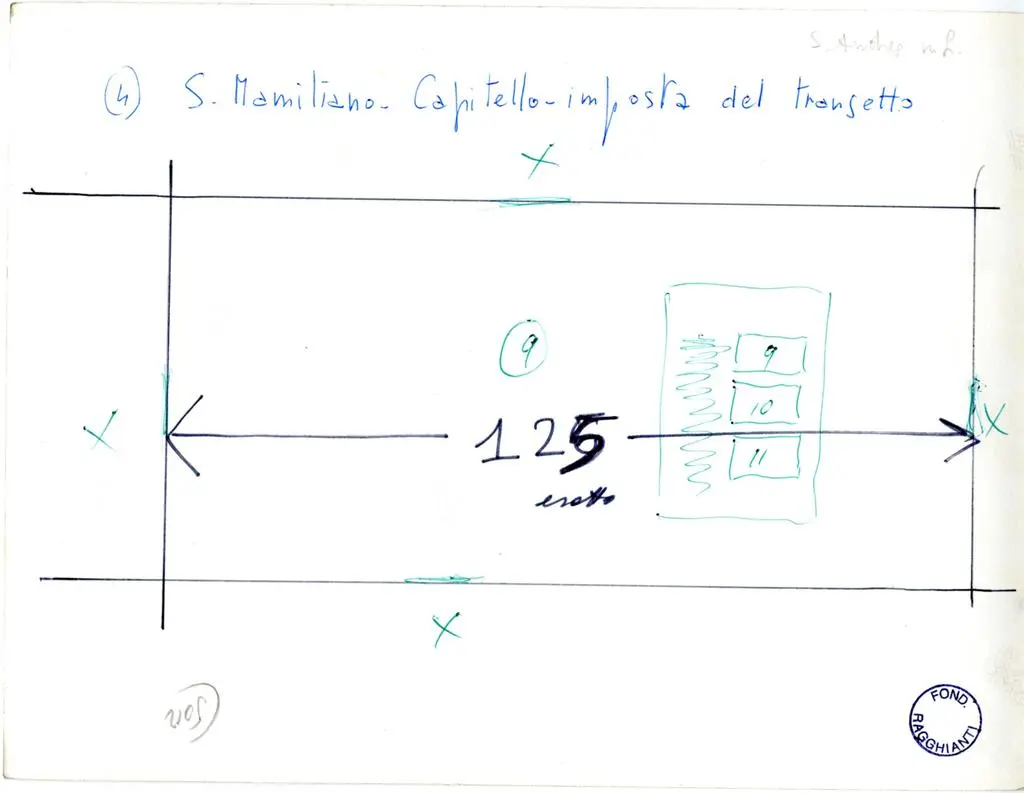 S. Andrea
(4) S. Mamiliano - Capitello - imposta del transetto
X
9
9
10
X
125
X
11
esatto
X
FOND. RAGGHIANTI